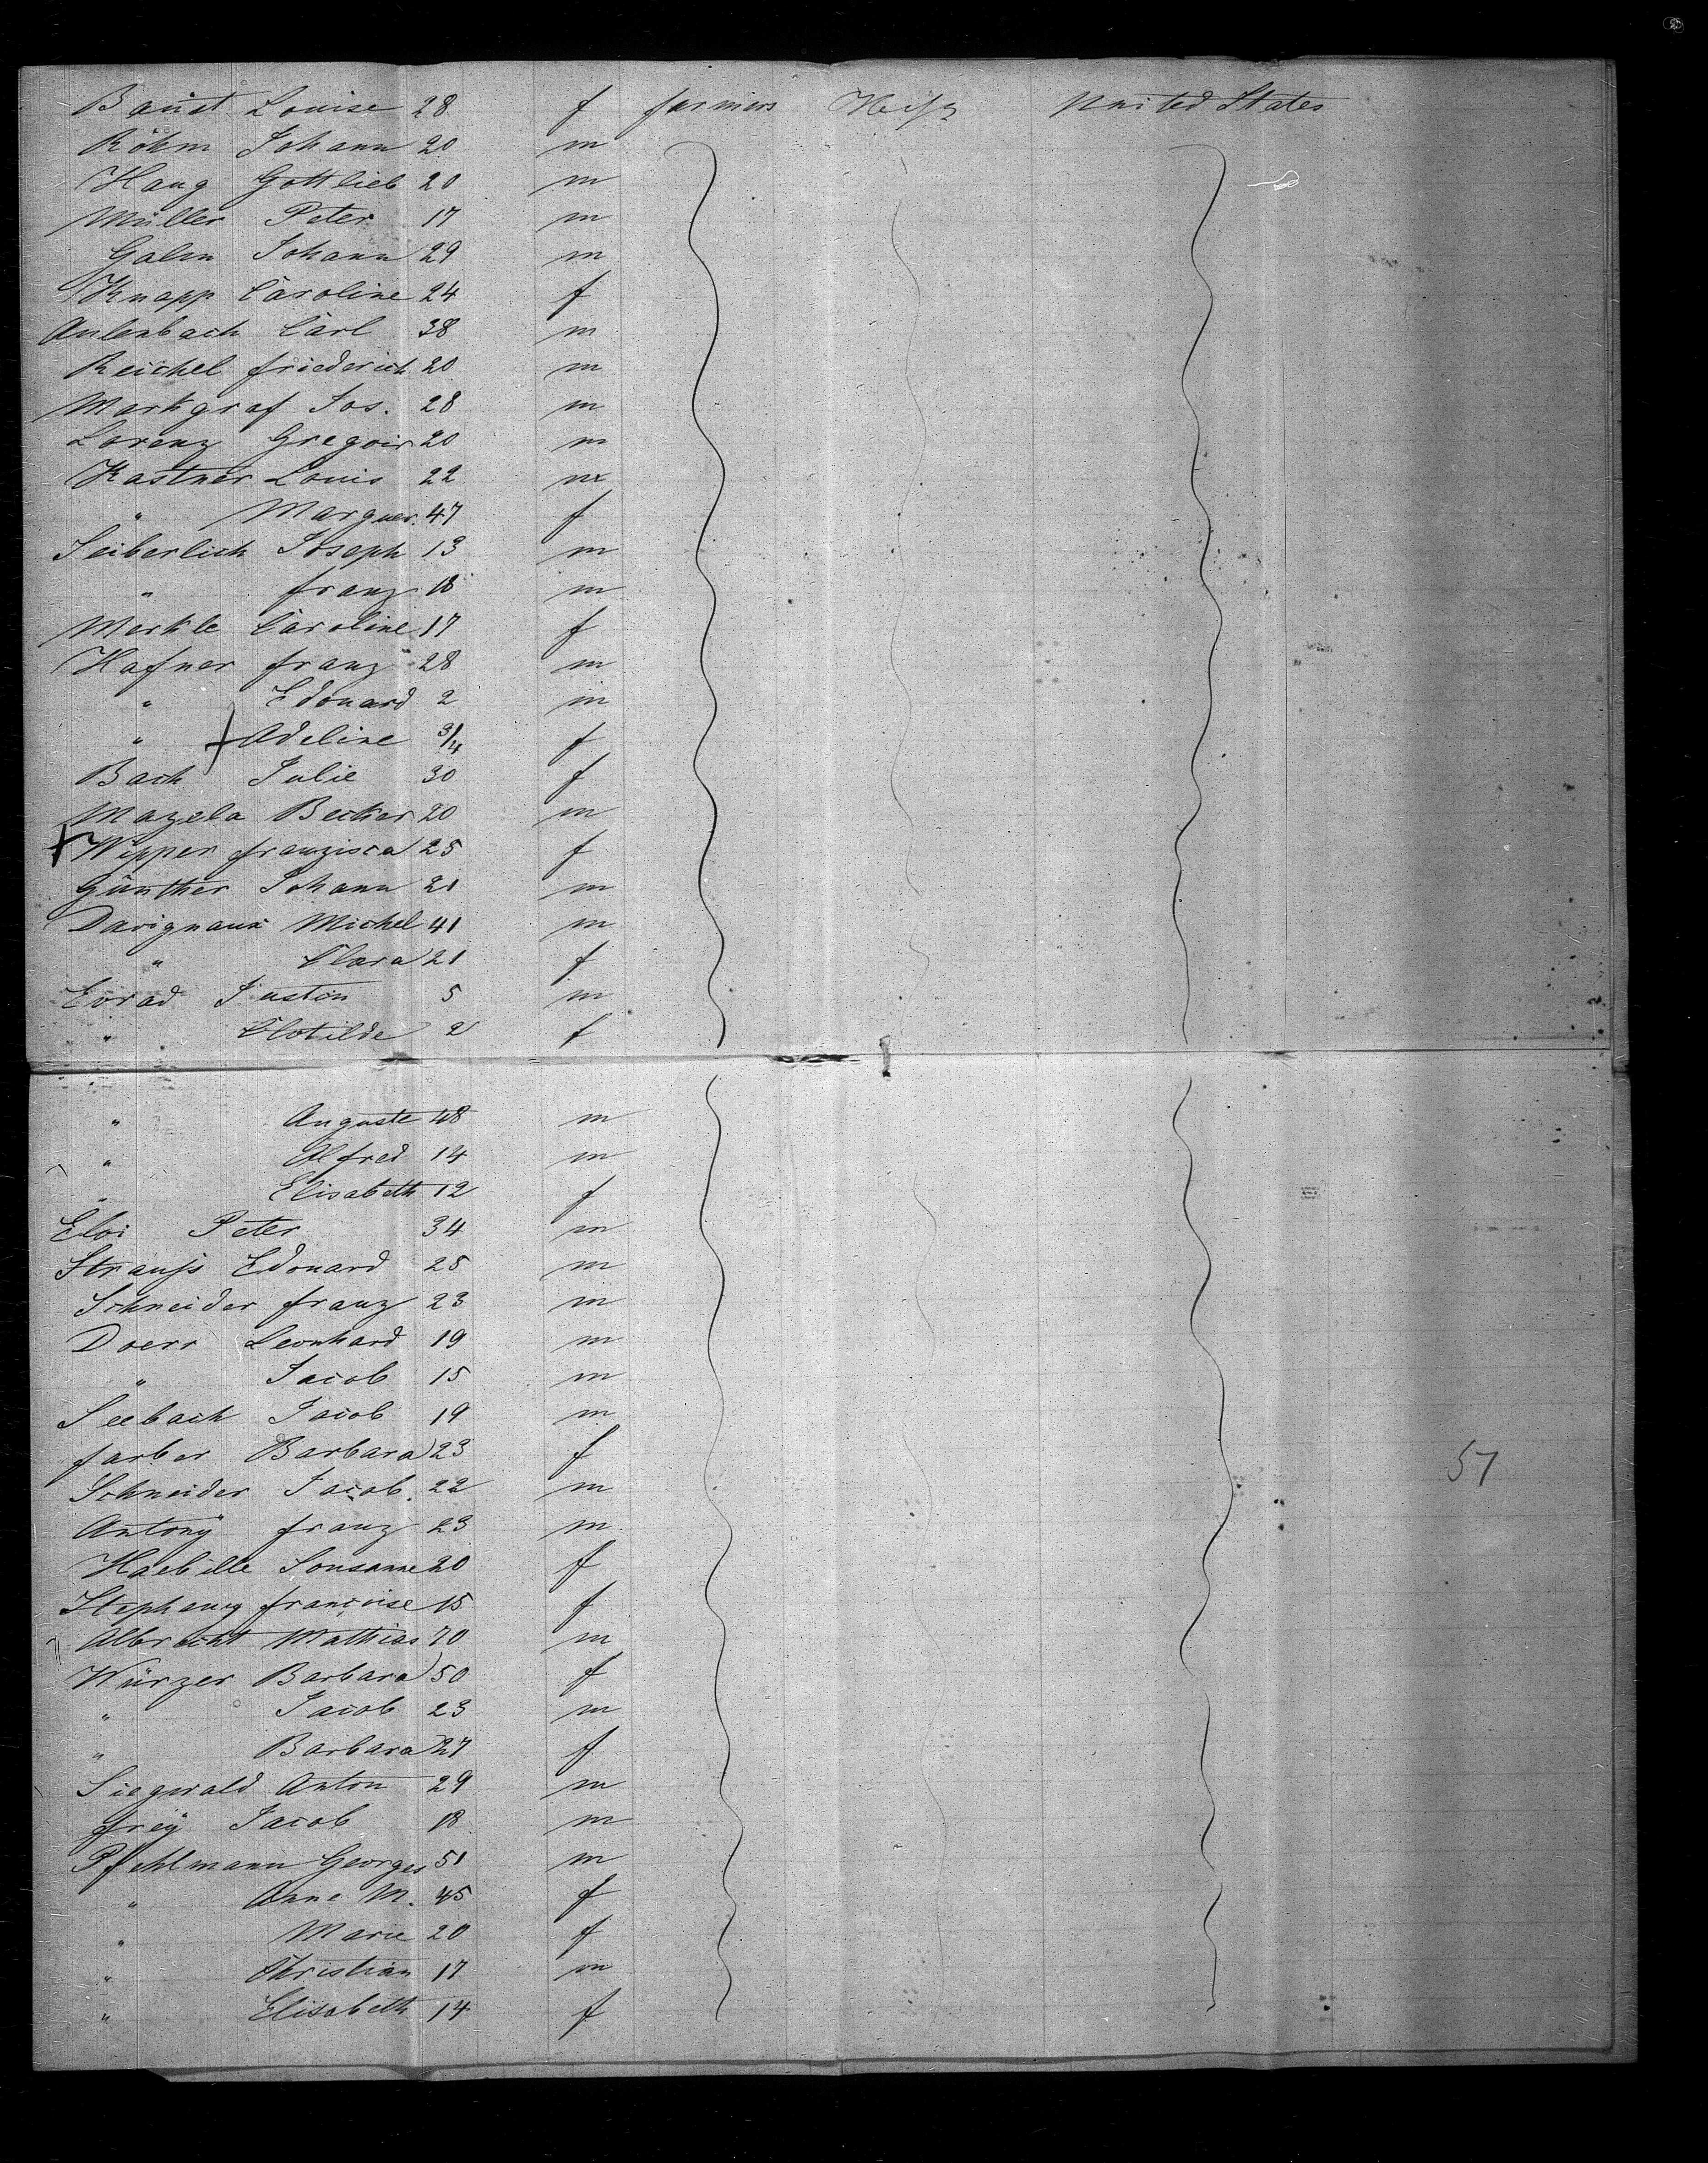 Louise 28 f farmers United States
Röhm Johann 20 m
Haug Gottlieb 20 m
Müller Peter 17 m
Galm Johann 29 m
Knapp Caroline 24 f
Aulenbach Carl 38 m
Reichel friederich 20 m
Markgraf Jos. 28 m
Lorenz Gregoir 20 m
Kastner Louis 22 m
" Marguer. 47 f
Seiberlich Joseph 13 m
" franz 18 m
Merkle Caroline 17 f
Hafner franz 28 m
" Edouard 2 m
" Adeline 3/4 f
Bach Julie 30 f
Mazela Becker 20 m
Wipper franzisca 25 f
Günther Johann 21 m
Davignaux Michel 41 m
" Clara 21 f
Evrad Justin 5 m
" Clotilde 2 f
" Auguste 48 m
" Alfred 14 m
" Elisabeth 12 f
Eloi Peter 34 m
Strauss Edouard 25 m
Schneider franz 23 m
Doerr Leonhard 19 m
" Jacob 15 m
Seebach Jacob 19 m
farber Barbara 23 f
57
Schneider Jacob 22 m
Antony franz 23 m
Haebille Sousanne 20 f
Stephany francoise 15 f
Albrecht Mathias 70 m
Würzer Barbara 50 f
" Jacob 23 m
" Barbara 27 f
Siegwald Anton 29 m
frey Jacob 18 m
Pfehlmann Georges 51 m
" Anne M. 45 f
" Marie 20 f
" Christian 17 m
" Elisabeth 14 f